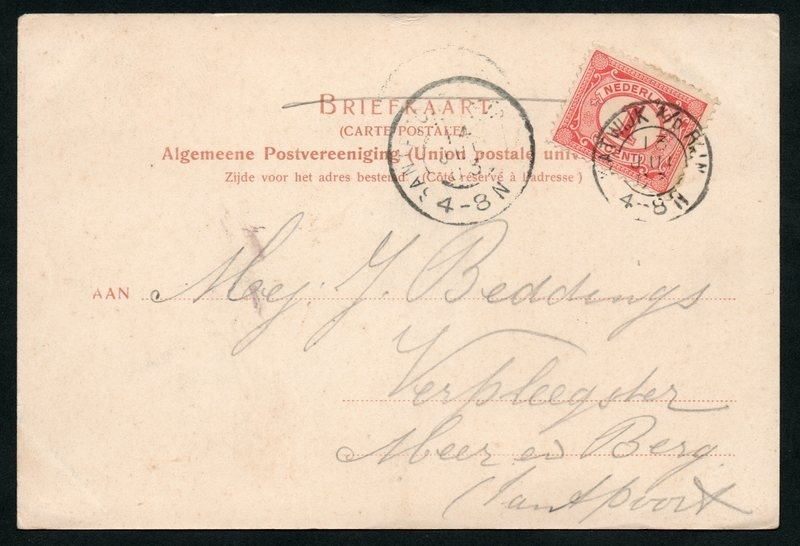 BRIEFKAART
(CARTE POSTALE)
Algemeene Postvereeniging (Union postale
Zijde voor het adres bestemd (Côté réservé à l'adresse)
NEDERLAND
CENT
KATWIJK A/D RIJN
13
4-8N
4-8N
AAN Mej. J. Beddings
Verpleegster
Meer en Berg
Santpoort